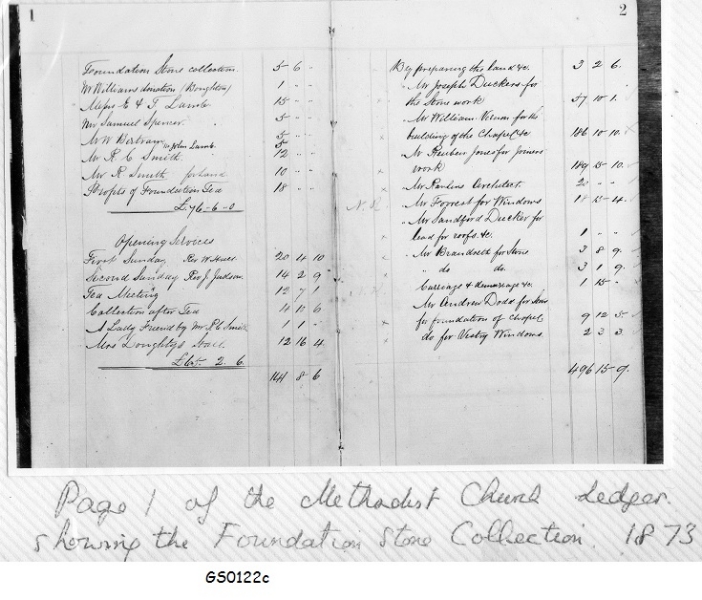 1
Foundation Stone collection 5 6 "
Mr Williams donation (Boughton) 1 " "
Messrs E & T Lamb 15 " "
Mr Samuel Spencer 5 " "
Mr W Bertram 5 " "
John Lamb 5
Mr R C Smith 12 " "
Mr R Smith for land 10 " "
Profits of Foundation Tea 18 " "
£76-6-0
Opening Services
First Sunday Rev W Hales 20 14 10
Second Sunday Rev J Judson 14 2 9
Tea Meeting 12 7 1
Collection after Tea 4 10 6
A Lady Friend by Mr R C Smith 1 1 -
Mrs Doughty's 12 16 4
2. 6.
141 8 6
2
By preparing the land &c. 3 2 6.
" Mr Joseph Duckers for
the Stone work 57 10 1.
" Mr William Vernon for the
building of the Chapel &c 186 10 10.
" Mr Reuben Jones for joiners
work 189 15 10.
" Mr Rawlins Architect. 20 " "
N.B. x " Mr Forrest for Windows 18 13 4.
" Mr Sandford Ducker for
lead for roofs. &c. 1 " -
x " Mr Brandreth for Stone 3 8 9.
" do do. 3 1 9.
Carriage & demurrage &c. 1 15 "
Mr Andrew Dodd for Stone
x for foundation of Chapel 9 12 5
x do for Vestry Windows 2 3 3.
496 15 9.
Page 1 of the Methodist Church Ledger.
showing the Foundation Stone Collection. 1873
GS0122c